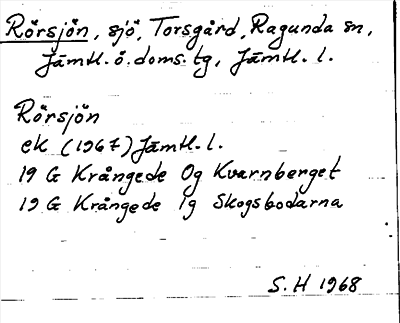 Rörsjön, sjö, Torsgård, Ragunda sn,
Jämtl. ö. doms. tg, Jämtl. l.
Rörsjön
ek (1967) Jämtl. l.
19 G Krångede 0g Kvarnberget
19 G Krångede 1g Skogsbodarna
S. H 1968